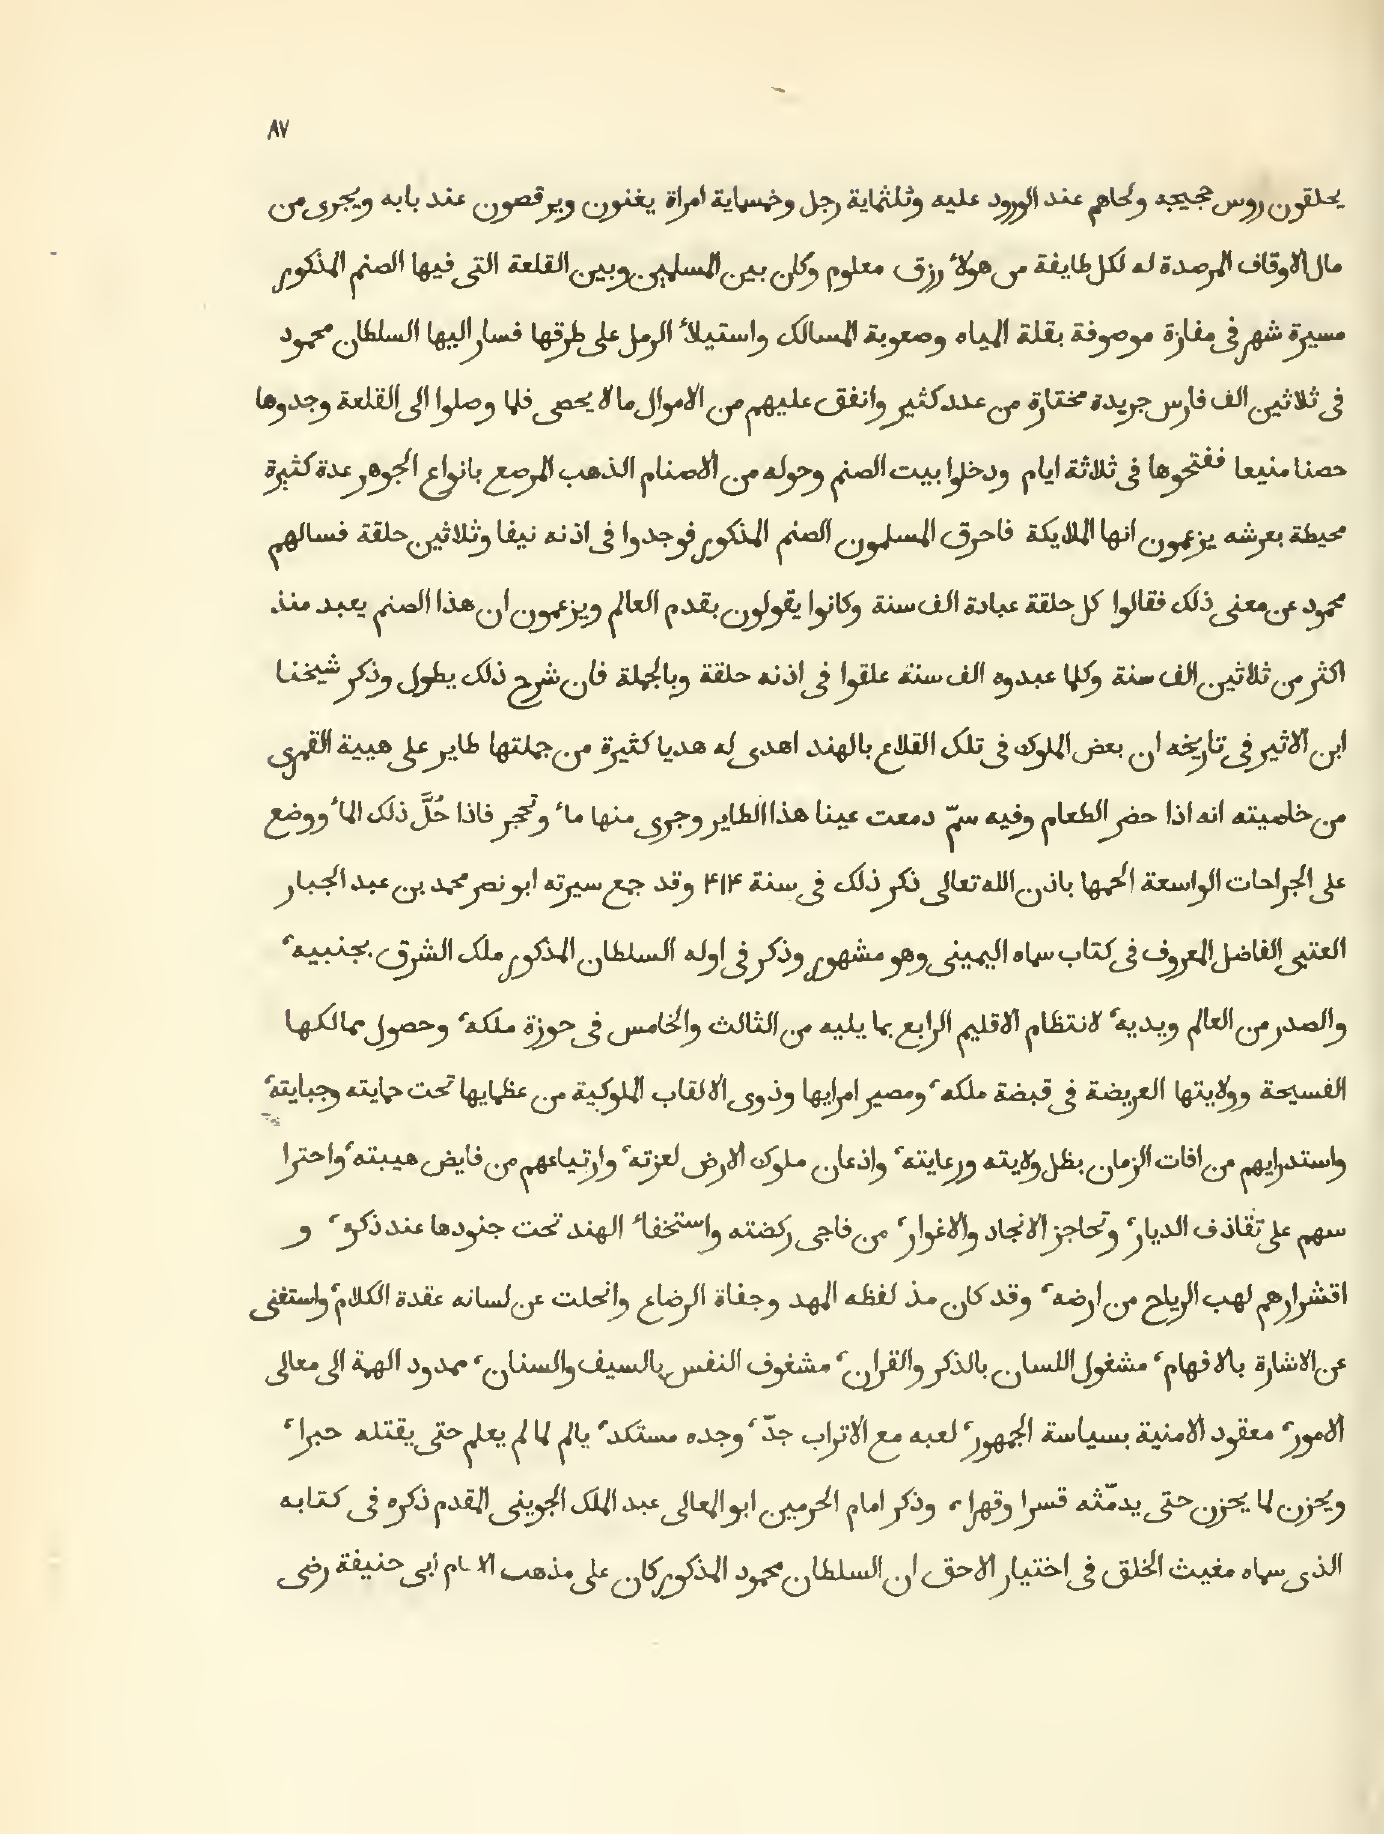 ٨٧
يحلقون روس حجيجه ولحاهم عند الورود عليه وثلثماية رجل وخمسماية امراة يغنون ويرقصون عند بابه ويجرى من
مال الاوقاف المرصدة له لكل طايفة من هولاء رزق معلوم وكان بين المسلمين وبين القلعة التى فيها الصنم المذكور
مسيرة شهر فى مفازة موصوفة بقلة المياه وصعوبة المسالك واستيلاء الرمل على طرقها فسار اليها السلطان محمود
فى ثلاثين الف فارس جريدة مختارة من عدد كثير وانفق عليهم من الاموال ما لا يحصى فلما وصلوا الى القلعة وجدوها
حصنا منيعا ففتحوها فى ثلاثة ايام ودخلوا بيت الصنم وحوله من الاصنام الذهب المرصع بانواع الجوهر عدة كثيرة
محيطة بعرشه يزعمون انها الملايكة فاحرق المسلمون الصنم المذكور فوجدوا فى اذنه نيفا وثلاثين حلقة فسالهم
محمود عن معنى ذلك فقالوا كل حلقة عبادة الف سنة وكانوا يقولون بقدم العالم ويزعمون ان هذا الصنم يعبد منذ
اكثر من ثلاثين الف سنة وكلما عبدوه الف سنة علقوا فى اذنه حلقة وبالجملة فان شرح ذلك يطول وذكر شيخنا
ابن الاثير فى تاريخه ان بعض الملوك فى تلك القلاع بالهند اهدى له هديا كثيرة من جملتها طاير على هيية القمرى
من خاصيته انه اذا حضر الطعام وفيه سمّ دمعت عينا هذا الطاير وجرى منها ماء وتحجر فاذا حُلَّ ذلك الماء ووضع
على الجراحات الواسعة الحمها باذن الله تعالى ذكر ذلك فى سنة ۴۱۴ وقد جمع سيرته ابو نصر محمد بن عبد الجبار
العتبى الفاضل المعروف فى كتاب سماه اليمينى وهو مشهور وذكر فى اوله السلطان المذكور ملك الشرق بجنبيه،
والصدر من العالم ويديه، لانتظام الاقليم الرابع بما يليه من الثالث والخامس فى حوزة ملكه، وحصول ممالكها
الفسيحة وولايتها العريضة فى قبضة ملكه، ومصير امرايها وذوى الالقاب الملوكية من عظمايها تحت حمايته وجبايته،
واستدرايهم من افات الزمان بظل ولايته ورعايته، واذعان ملوك الارض لعزته، وارتياعهم من فايض هيبته، واحترا
سهم على تقاذف الديار، وتحاجز الانجاد والاغوار، من فاجى ركضته واستخفاء الهند تحت جنودها عند ذكره، و
اقشرارهم لهب الرياح من ارضه، وقد كان مذ لفظه المهد وجفاة الرضاع وانحلت عن لسانه عقدة الكلام، واستغنى
عن الاشارة بالافهام، مشغول اللسان بالذكر والقران، مشغوف النفس بالسيف والسنان، ممدود الهمة الى معالى
الامور، معقود الامنية بسياسة الجمهور، لعبه مع الاتراب جدّ، وجده مستكد، يالم لما لم يعلم حتى يقتله خبرا،
ويحزن لما يحزن حتى يدمّثه قسرا وقهرا، وذكر امام الحرمين ابو المعالى عبد الملك الجوينى المقدم ذكره فى كتابه
الذى سماه مغيث الخلق فى اختيار الاحق ان السلطان محمود المذكور كان على مذهب الامام ابى حنيفة رضى